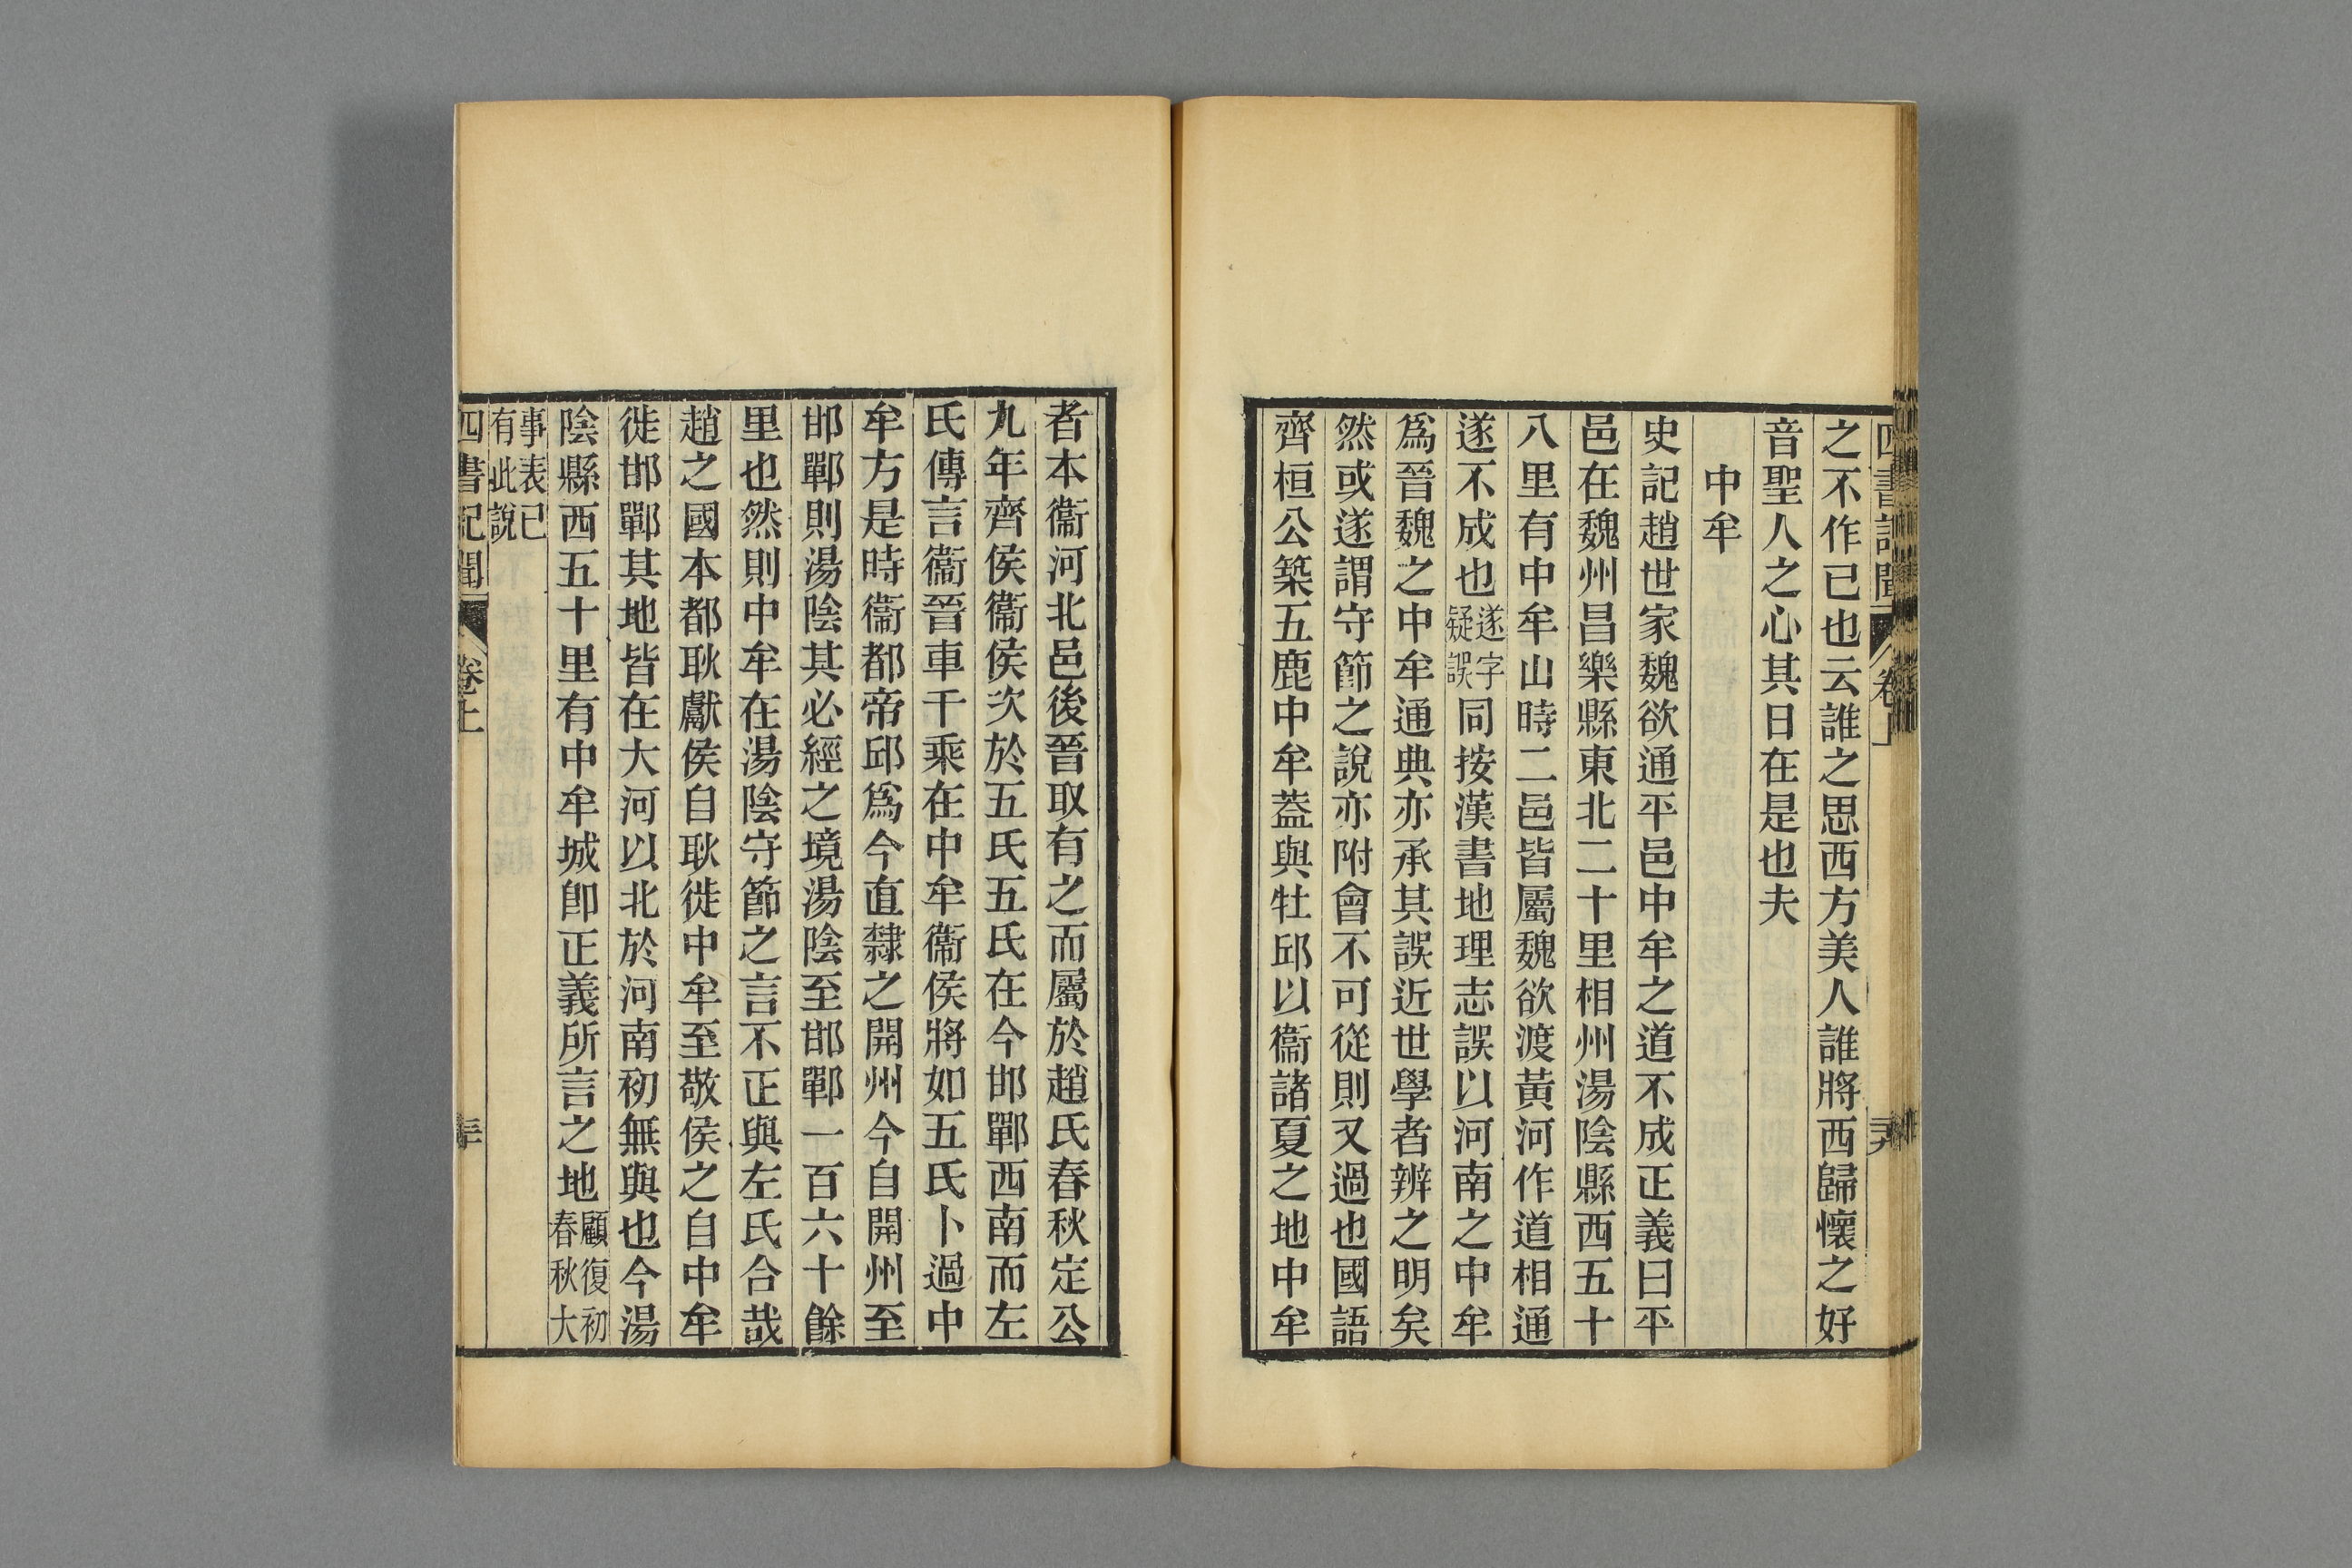 四書記聞 卷上
之不作已也云誰之思西方美人誰將西歸懷之好
音聖人之心其日在是也夫
中牟
史記趙世家魏欲通平邑中牟之道不成正義曰平
邑在魏州昌樂縣東北二十里相州湯陰縣西五十
八里有中牟山時二邑皆屬魏欲渡黃河作道相通
遂不成也遂字疑誤同按漢書地理志誤以河南之中牟
爲晉魏之中牟通典亦承其誤近世學者辨之明矣
然或遂謂守節之說亦附會不可從則又過也國語
齊桓公築五鹿中牟蓋與牡邱以衞諸夏之地中牟
者本衞河北邑後晉取有之而屬於趙氏春秋定公
九年齊侯衞侯次於五氏五氏在今邯鄲西南而左
氏傳言衞晉車千乘在中牟衞侯將如五氏卜過中
牟方是時衞都帝邱爲今直隸之開州今自開州至
邯鄲則湯陰其必經之境湯陰至邯鄲一百六十餘
里也然則中牟在湯陰守節之言不正與左氏合哉
趙之國本都耿獻侯自耿徙中牟至敬侯之自中牟
徙邯鄲其地皆在大河以北於河南初無與也今湯
陰縣西五十里有中牟城卽正義所言之地顧復初春秋大
事表已有此說
四書記聞 卷上